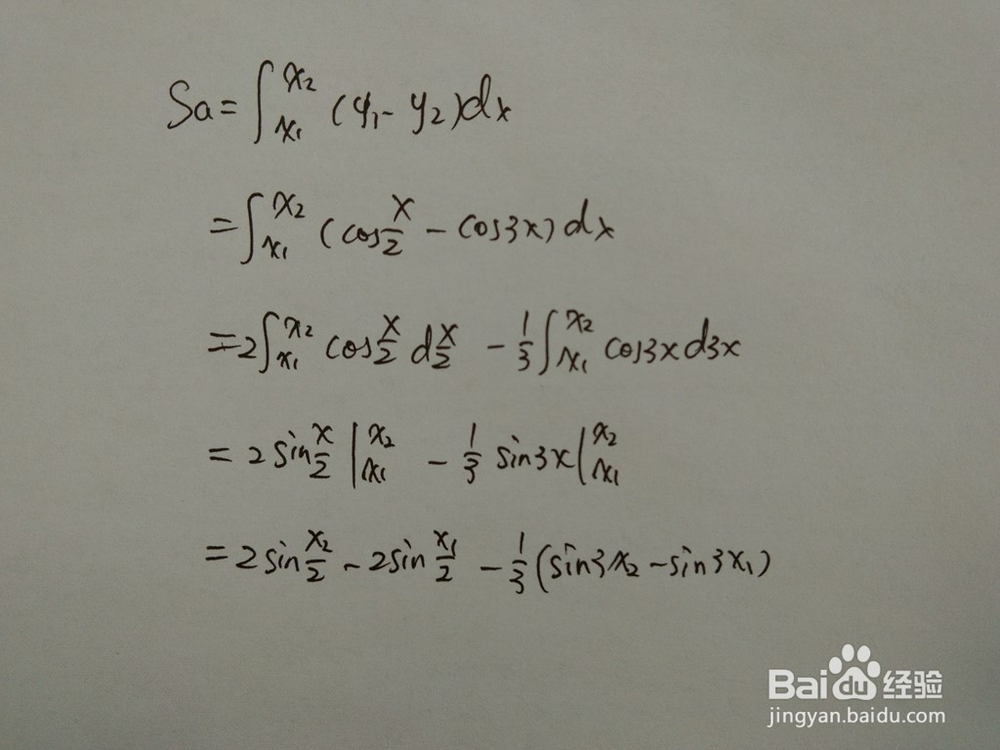 Sa=∫_{x₁}^{x₂} (y₁-y₂)dx
=∫_{x₁}^{x₂} (cos x/2 - cos3x)dx
=2∫_{x₁}^{x₂} cos x/2 d x/2 - 1/3 ∫_{x₁}^{x₂} cos3x d3x
= 2 sin x/2 |_{x₁}^{x₂} - 1/3 sin3x |_{x₁}^{x₂}
= 2 sin x₂/2 - 2 sin x₁/2 - 1/3 (sin3x₂ - sin3x₁)
Baidu 经验
jingyan.baidu.com